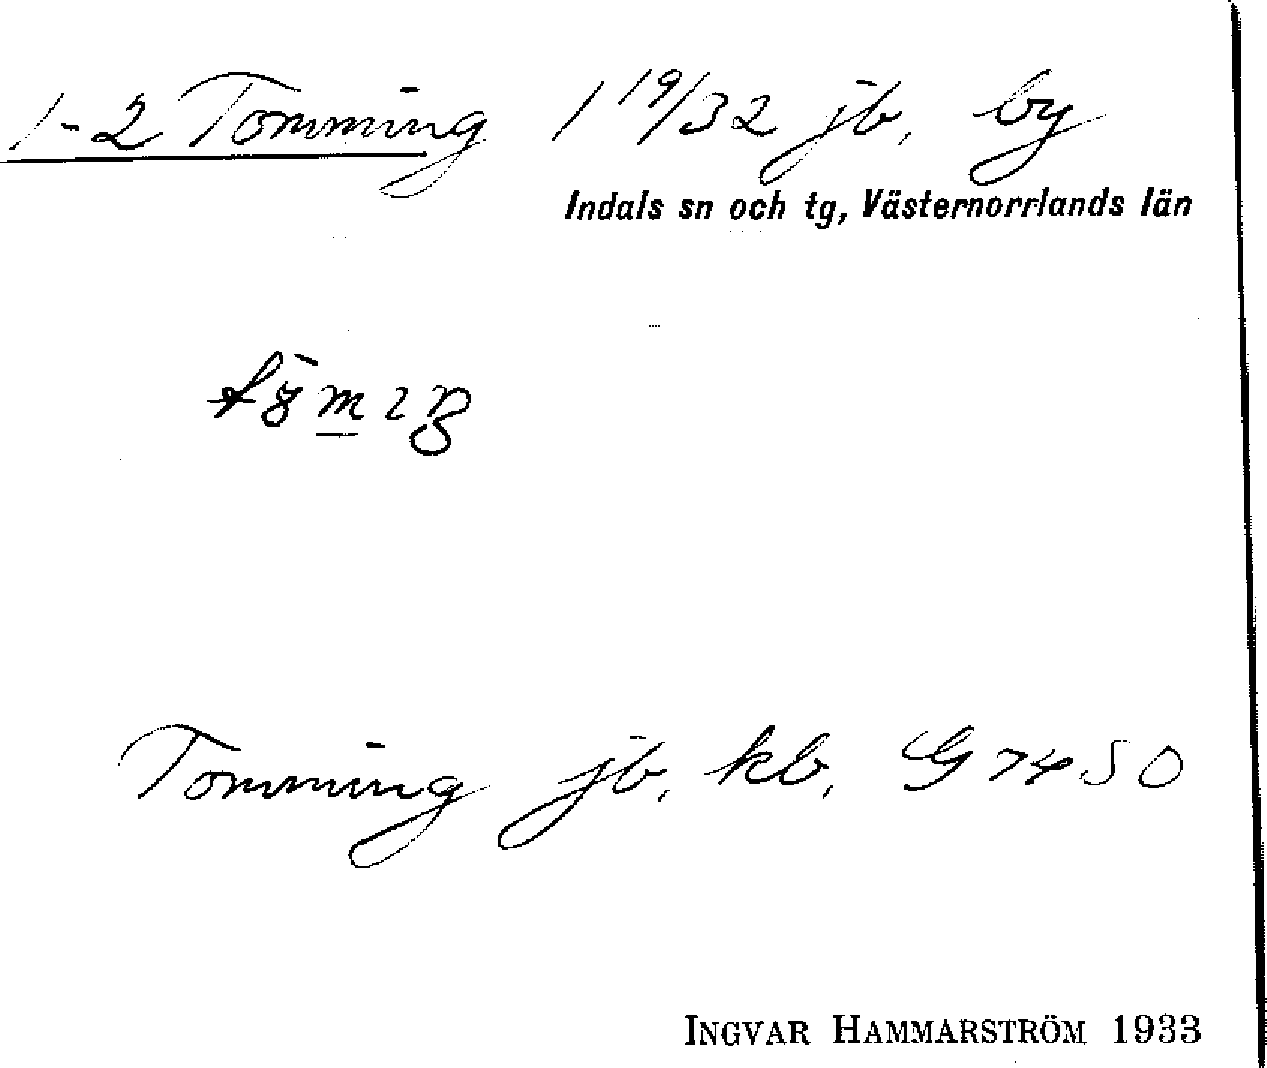 1-2 Tomming 1 19/32 jb, by
Indals sn och tg, Västernorrlands län
Tomming jb, kb, G 7450
INGVAR HAMMARSTRÖM 1933